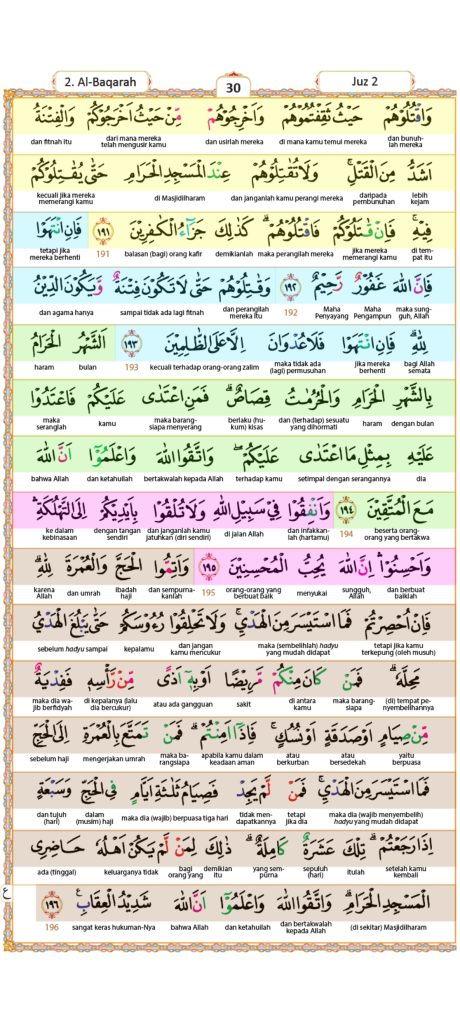 2. Al-Baqarah 30 Juz 2
وَاقْتُلُوْهُمْ حَيْثُ ثَقِفْتُمُوْهُمْ وَاَخْرِجُوْهُمْ مِّنْ حَيْثُ اَخْرَجُوْكُمْ وَالْفِتْنَةُ
dan bunuhlah mereka di mana kamu temui mereka dan usirlah mereka dari mana mereka telah mengusir kamu dan fitnah itu
اَشَدُّ مِنَ الْقَتْلِۚ وَلَا تُقٰتِلُوْهُمْ عِنْدَ الْمَسْجِدِ الْحَرَامِ حَتّٰى يُقٰتِلُوْكُمْ
lebih kejam daripada pembunuhan dan janganlah kamu perangi mereka di Masjidilharam kecuali jika mereka memerangi kamu
فِيْهِۚ فَاِنْ قٰتَلُوْكُمْ فَاقْتُلُوْهُمْۗ كَذٰلِكَ جَزَاۤءُ الْكٰفِرِيْنَ ١٩١ فَاِنِ انْتَهَوْا
di tempat itu jika mereka memerangi kamu maka perangilah mereka demikianlah balasan (bagi) orang kafir 191 tetapi jika mereka berhenti
فَاِنَّ اللّٰهَ غَفُوْرٌ رَّحِيْمٌ ١٩٢ وَقٰتِلُوْهُمْ حَتّٰى لَا تَكُوْنَ فِتْنَةٌ وَّيَكُوْنَ الدِّيْنُ
maka sungguh, Allah Maha Pengampun Maha Penyayang 192 dan perangilah mereka itu sampai tidak ada lagi fitnah dan agama hanya
لِلّٰهِۗ فَاِنِ انْتَهَوْا فَلَا عُدْوَانَ اِلَّا عَلَى الظّٰلِمِيْنَ ١٩٣ اَلشَّهْرُ الْحَرَامُ
bagi Allah semata jika mereka berhenti maka tidak ada (lagi) permusuhan kecuali terhadap orang-orang zalim 193 bulan haram
بِالشَّهْرِ الْحَرَامِ وَالْحُرُمٰتُ قِصَاصٌۗ فَمَنِ اعْتَدٰى عَلَيْكُمْ فَاعْتَدُوْا
dengan bulan haram dan (terhadap) sesuatu yang dihormati berlaku (hukum) kisas maka barangsiapa menyerang kamu maka seranglah
عَلَيْهِ بِمِثْلِ مَا اعْتَدٰى عَلَيْكُمْۖ وَاتَّقُوا اللّٰهَ وَاعْلَمُوْٓا اَنَّ اللّٰهَ
dia setimpal dengan serangannya terhadap kamu bertakwalah kepada Allah dan ketahuilah bahwa Allah
مَعَ الْمُتَّقِيْنَ ١٩٤ وَاَنْفِقُوْا فِيْ سَبِيْلِ اللّٰهِ وَلَا تُلْقُوْا بِاَيْدِيْكُمْ اِلَى التَّهْلُكَةِۛ
beserta orang-orang yang bertakwa 194 dan infakkanlah (hartamu) di jalan Allah dan janganlah kamu jatuhkan (diri sendiri) dengan tangan sendiri ke dalam kebinasaan
وَاَحْسِنُوْاۛ اِنَّ اللّٰهَ يُحِبُّ الْمُحْسِنِيْنَ ١٩٥ وَاَتِمُّوا الْحَجَّ وَالْعُمْرَةَ لِلّٰهِۗ
dan berbuat baiklah sungguh, Allah menyukai orang-orang yang berbuat baik 195 dan sempurnakanlah ibadah haji dan umrah karena Allah
فَاِنْ اُحْصِرْتُمْ فَمَا اسْتَيْسَرَ مِنَ الْهَدْيِۚ وَلَا تَحْلِقُوْا رُءُوْسَكُمْ حَتّٰى يَبْلُغَ الْهَدْيُ
tetapi jika kamu terkepung (oleh musuh) maka (sembelihlah) hadyu yang mudah didapat dan jangan kamu mencukur kepalamu sebelum hadyu sampai
مَحِلَّهٗۗ فَمَنْ كَانَ مِنْكُمْ مَّرِيْضًا اَوْ بِهٖٓ اَذًى مِّنْ رَّأْسِهٖ فَفِدْيَةٌ
(di) tempat penyembelihannya maka barangsiapa di antara kamu sakit atau ada gangguan di kepalanya (lalu dia bercukur) maka dia wajib berfidyah
مِّنْ صِيَامٍ اَوْ صَدَقَةٍ اَوْ نُسُكٍۚ فَاِذَآ اَمِنْتُمْۗ فَمَنْ تَمَتَّعَ بِالْعُمْرَةِ اِلَى الْحَجِّ
yaitu berpuasa atau bersedekah atau berkurban apabila kamu dalam keadaan aman maka barangsiapa mengerjakan umrah sebelum haji
فَمَا اسْتَيْسَرَ مِنَ الْهَدْيِۚ فَمَنْ لَّمْ يَجِدْ فَصِيَامُ ثَلٰثَةِ اَيَّامٍ فِى الْحَجِّ وَسَبْعَةٍ
maka dia (wajib menyembelih) hadyu yang mudah didapat tetapi jika dia tidak mendapatkannya maka dia (wajib) berpuasa tiga hari dalam (musim) haji dan tujuh (hari)
اِذَا رَجَعْتُمْۗ تِلْكَ عَشَرَةٌ كَامِلَةٌۗ ذٰلِكَ لِمَنْ لَّمْ يَكُنْ اَهْلُهٗ حَاضِرِى
setelah kamu kembali itulah sepuluh (hari) yang sempurna demikian itu bagi orang yang keluarganya tidak ada (tinggal)
الْمَسْجِدِ الْحَرَامِۗ وَاتَّقُوا اللّٰهَ وَاعْلَمُوْٓا اَنَّ اللّٰهَ شَدِيْدُ الْعِقَابِ ١٩٦
(di sekitar) Masjidilharam dan bertakwalah kepada Allah dan ketahuilah bahwa Allah sangat keras hukuman-Nya 196
ع